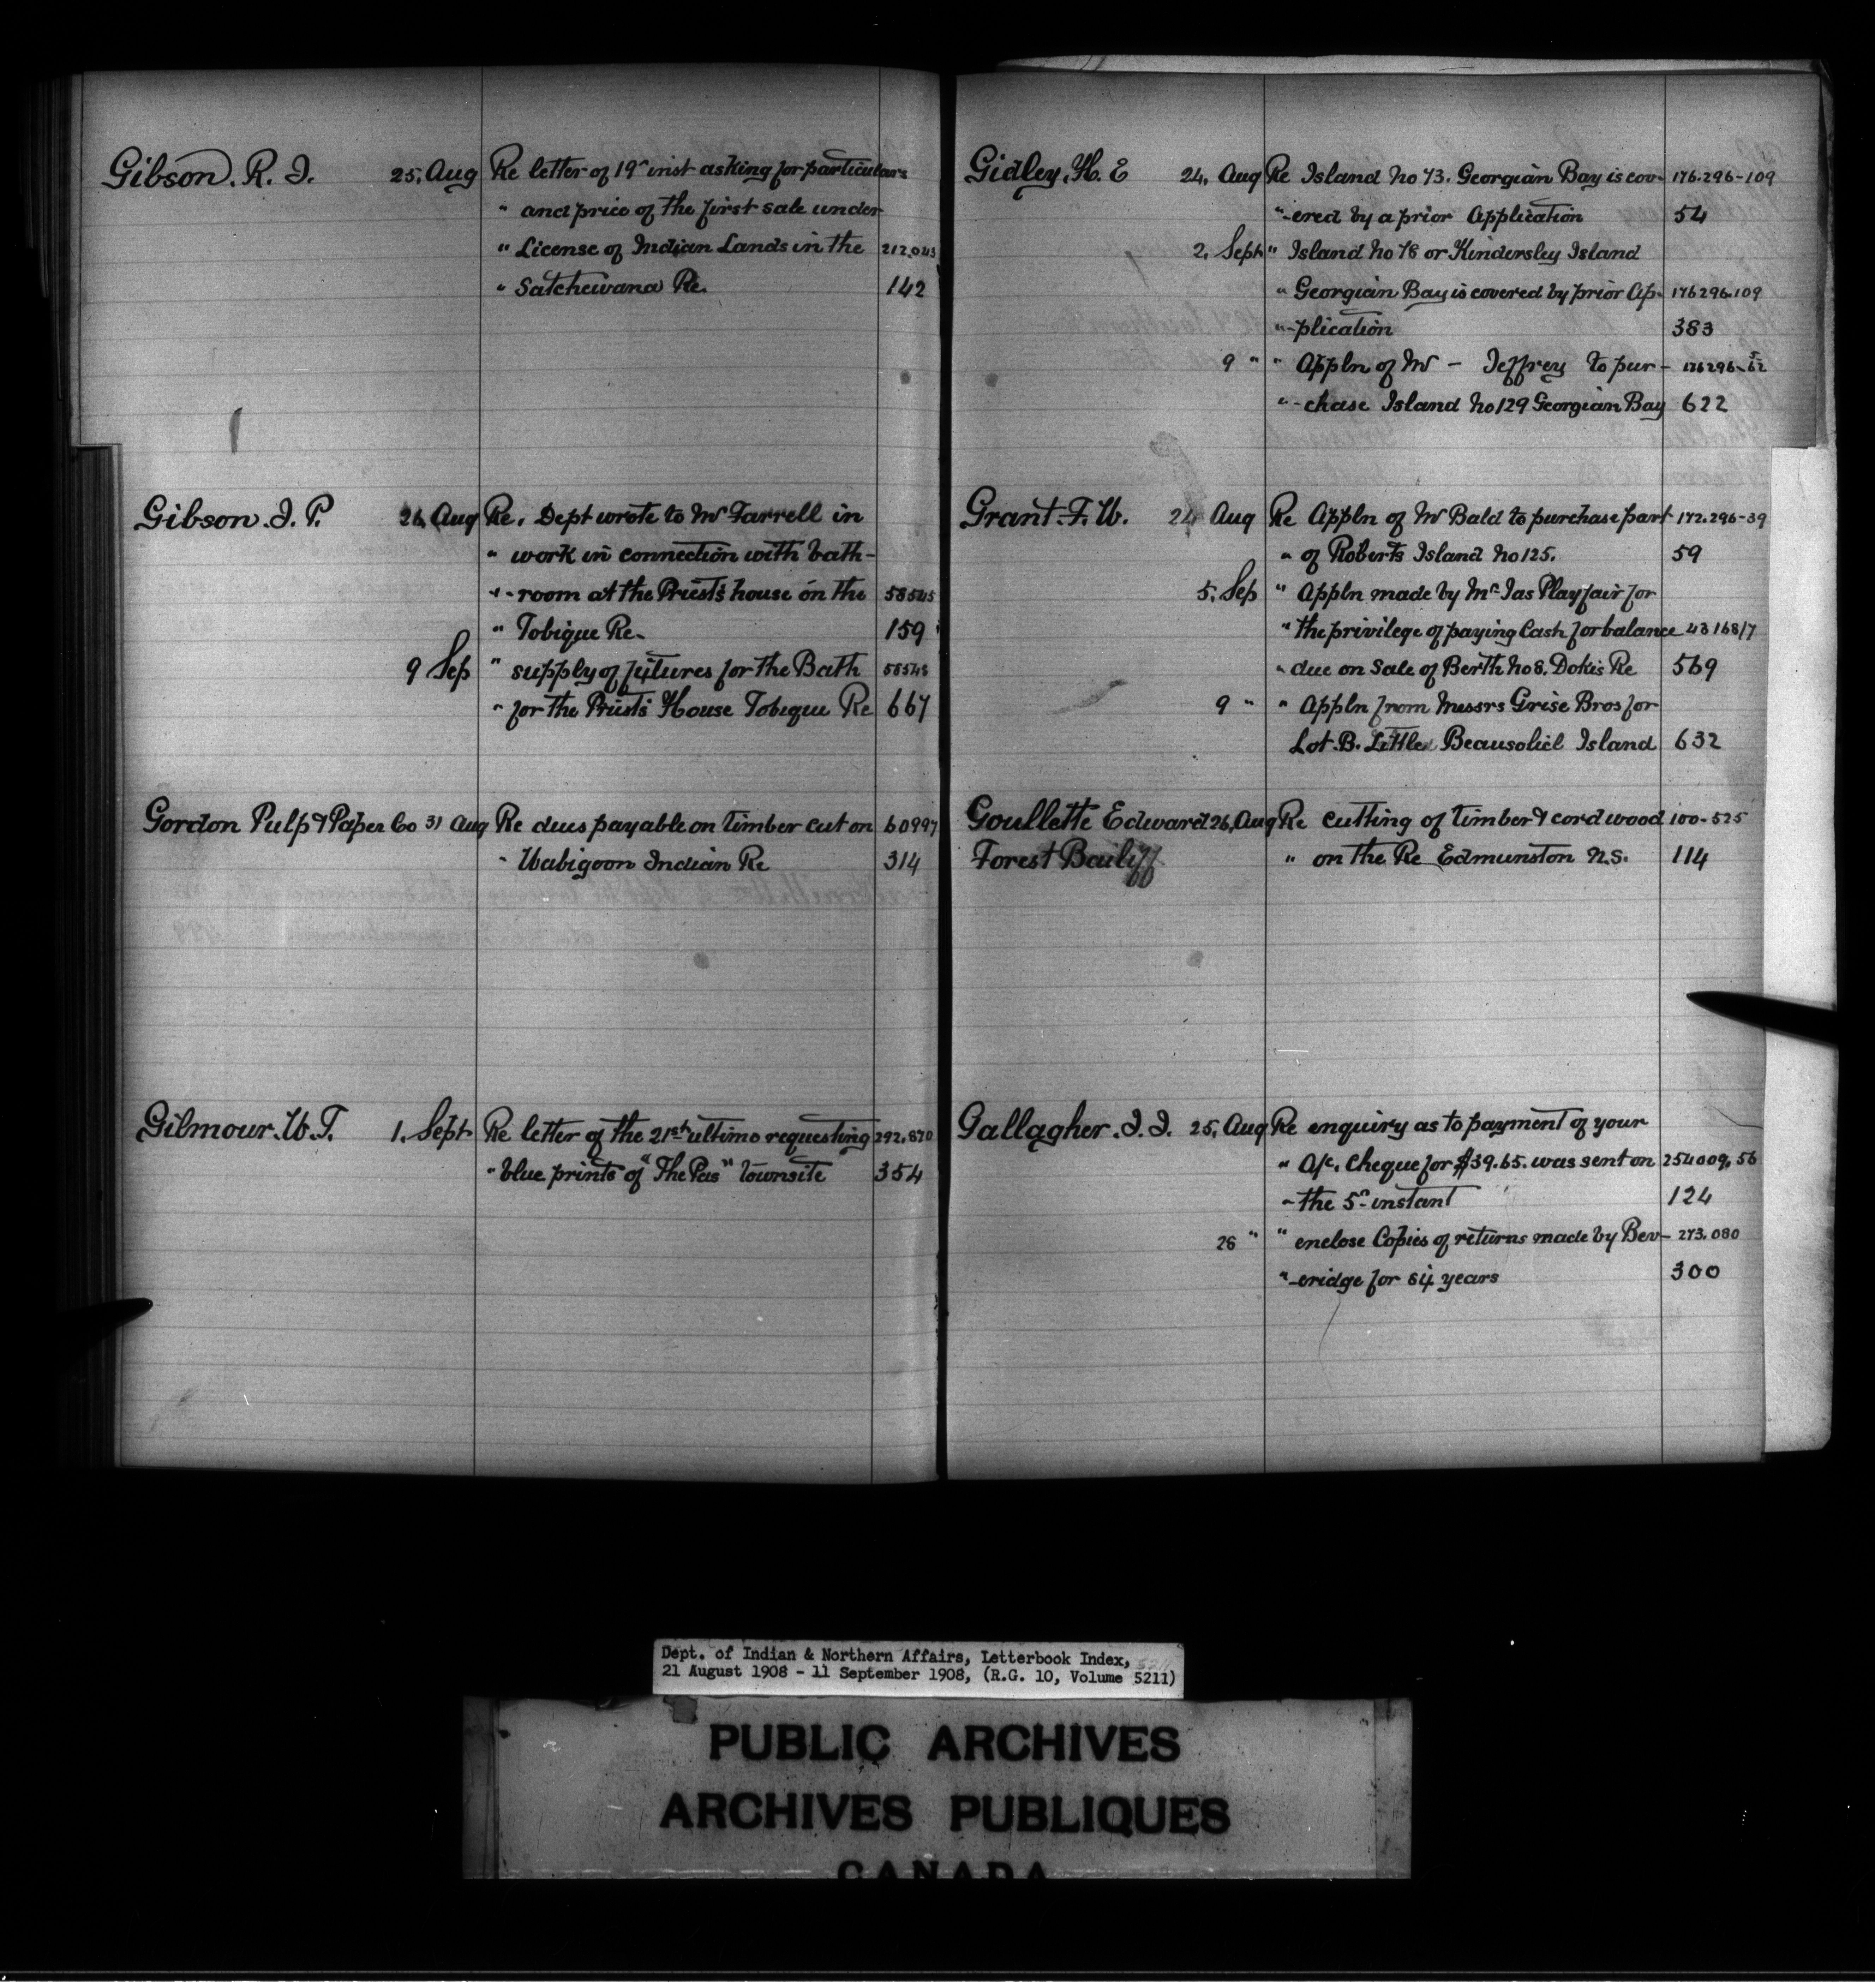 Gibson. R. J. 25. Aug Re letter of 19" inst asking for particulars
" and price of the first sale under
" License of Indian Lands in the 212.045
" Satchewana Re. 142
Gibson. J. P. 26. Aug Re. Dept wrote to Mr Farrell in
" work in connection with bath-
" -room at the Priest's house on the 58545
" Tobique Re. 159
9 Sep " supply of fixtures for the Bath 58545
" for the Priests House Tobique Re 667
Gordon Pulp & Paper Co 31 Aug Re dues payable on timber cut on 60997
" Wabigoon Indian Re 314
Gilmour. W. T. 1. Sept Re letter of the 21st ultimo requesting 292.870
" blue prints of "The Pas" townsite 354
Gidley. H. E 24. Aug Re Island No 73. Georgian Bay is cov- 176.296-109
"-ered by a prior Application 54
2. Sept " Island No 78 or Kindersley Island
" Georgian Bay is covered by prior Ap- 176296.109
"-plication 383
9 " " Appln of Mr - Jeffrey to pur-
"-chase Island No 129 Georgian Bay 622
Grant. F. W. 24 Aug Re Appln of Mr Bald to purchase part 172.296-39
" of Roberts Island No 125. 59
5. Sep " Appln made by Mr Jas Playfair for
" the privilege of paying Cash for balance 43168/7
" due on Sale of Berth No 8. Dokis Re 569
9 " " Appln from Messrs Grise Bros for
Lot. B. Little Beausoliel Island 632
Goullette Edward 26. Aug Re cutting of timber & cord wood 100-525
Forest Bailiff " on the Re Edmunston N.S. 114
Gallagher. J. J. 25. Aug Re enquiry as to payment of your
" A/c. Cheque for $39.65. was sent on 254009.56
" the 5" instant 124
28 " " enclose Copies of returns made by Bev- 273.080
"-eridge for 64 years 300
Dept. of Indian & Northern Affairs, Letterbook Index,
21 August 1908 - 11 September 1908, (R.G. 10, Volume 5211)
PUBLIC ARCHIVES
ARCHIVES PUBLIQUES
CANADA